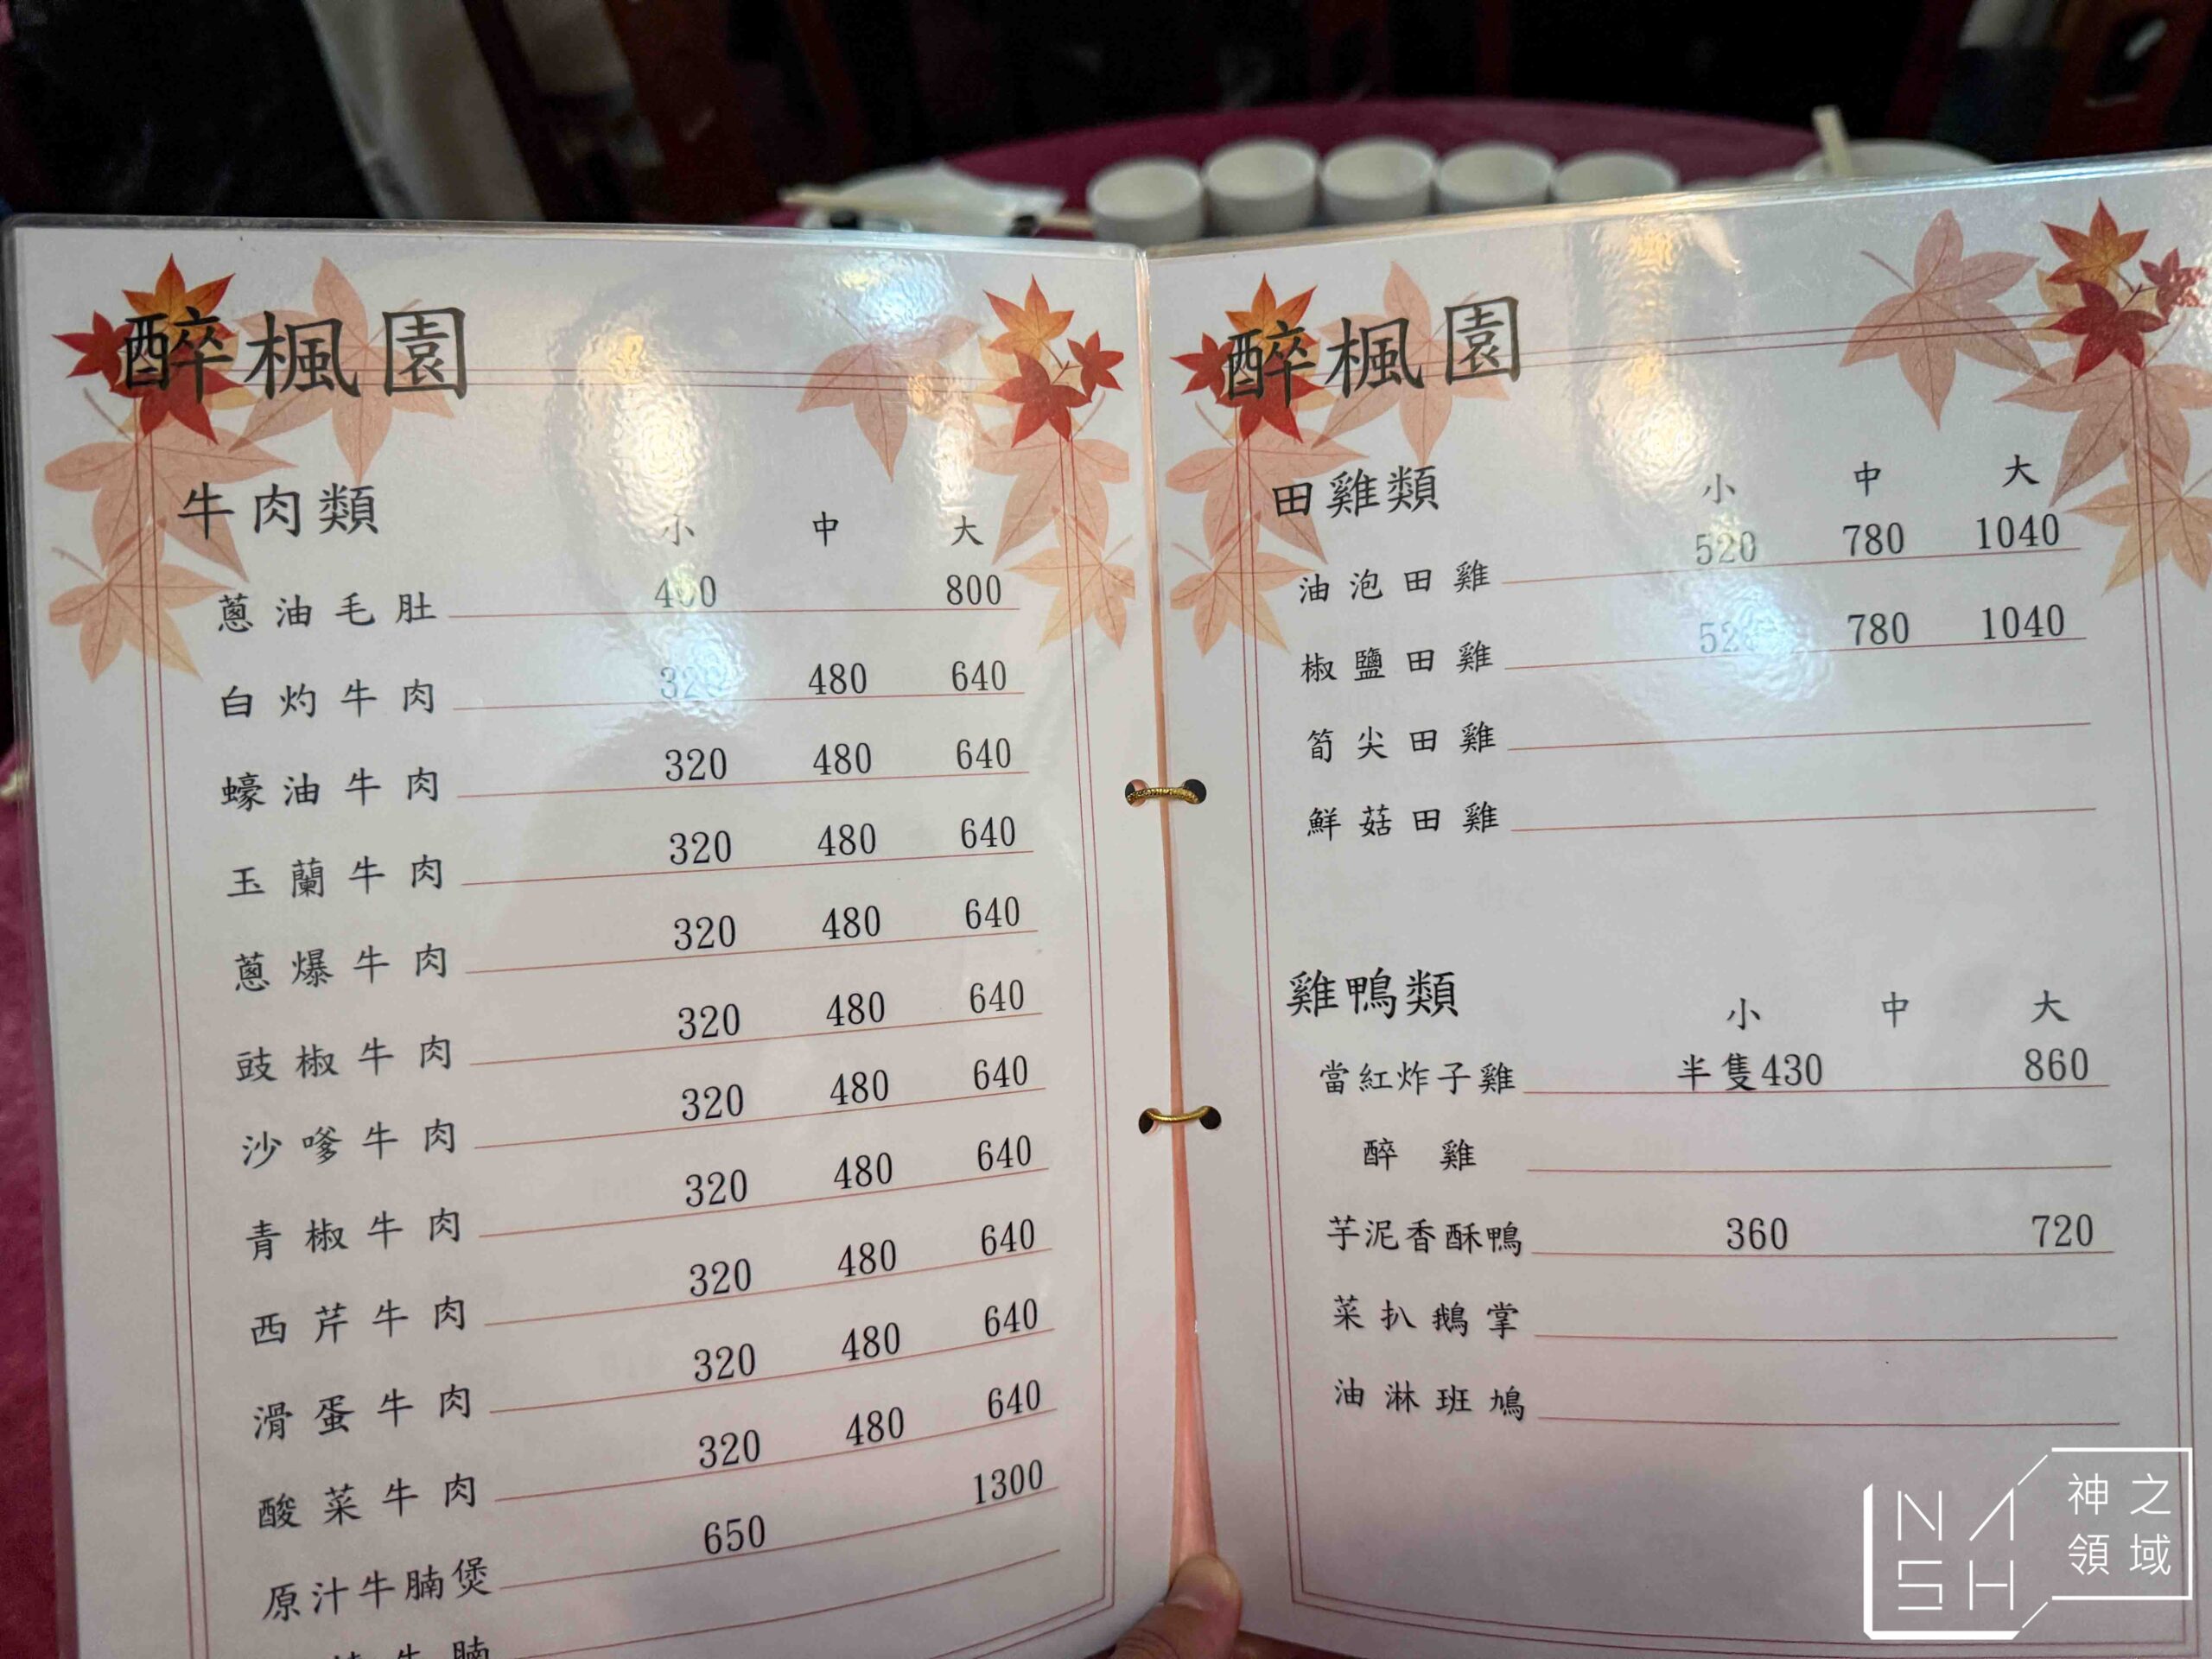 醉楓園
牛肉類 小 中 大
蔥油毛肚 400 800
白灼牛肉 320 480 640
蠔油牛肉 320 480 640
玉蘭牛肉 320 480 640
蔥爆牛肉 320 480 640
豉椒牛肉 320 480 640
沙嗲牛肉 320 480 640
青椒牛肉 320 480 640
西芹牛肉 320 480 640
滑蛋牛肉 320 480 640
酸菜牛肉 320 480 640
原汁牛腩煲 650 1300
牛腩
醉楓園
田雞類 小 中 大
油泡田雞 520 780 1040
椒鹽田雞 520 780 1040
筍尖田雞
鮮菇田雞
雞鴨類 小 中 大
當紅炸子雞 半隻430 860
醉雞
芋泥香酥鴨 360 720
菜扒鵝掌
油淋班鳩
NASH
神之領域